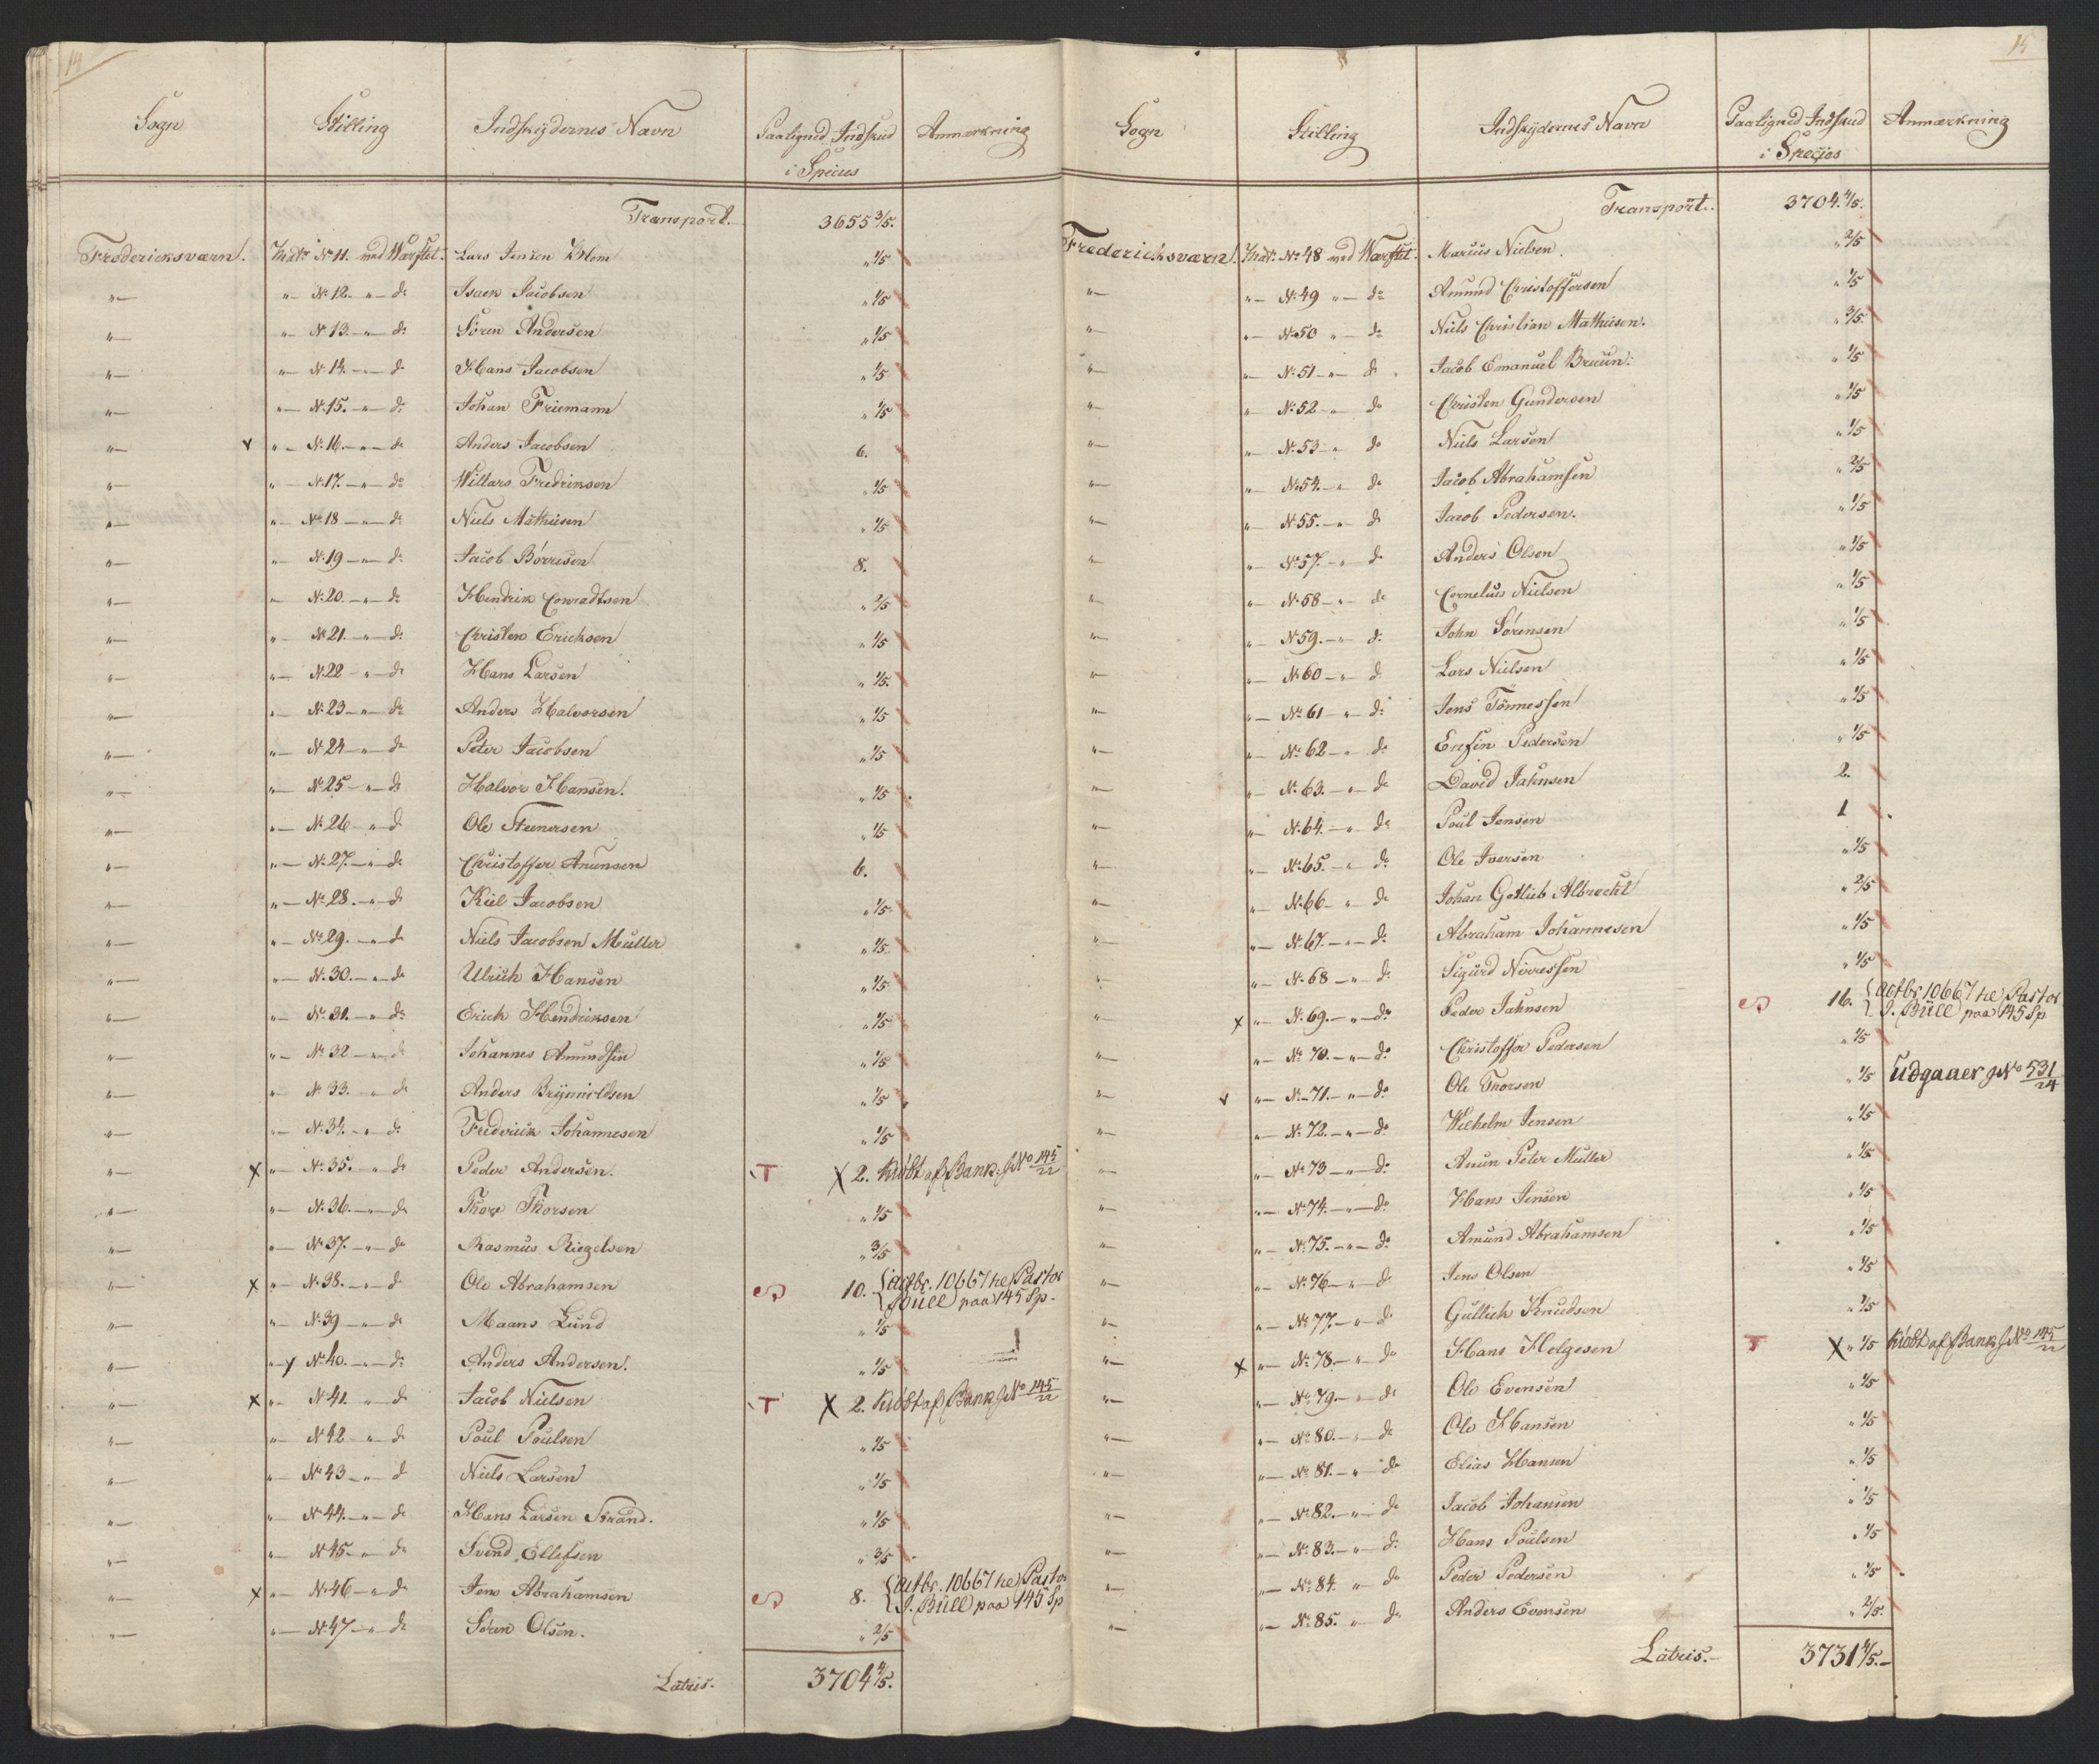 14
Sogn Stilling Indskydernes Navn Paaligned Indskud i Species Anmærkning
Transport. 3655 3/5.
Fredericksværn. Matr: No 11. ved Værftet. Lars Jensen Blom " 1/5
"— "— No 12. "— do Isack Jacobsen " 1/5
"— "— No 13. "— do Sören Andersen " 1/5
"— "— No 14. "— do Hans Jacobsen " 1/5
"— "— No 15. "— do Johan Friemann " 1/5
"— v "— No 16. "— do Anders Jacobsen 6.
"— "— No 17. "— do Willars Fredriksen " 1/5
"— "— No 18 "— do Niels Mathiesen " 1/5
"— "— No 19 "— do Jacob Börresen 8.
"— "— No 20. "— do Hendrik Conradtsen " 2/5
"— "— No 21. "— do Christen Ericksen " 1/5
"— "— No 22 "— do Hans Larsen " 1/5.
"— "— No 23 "— do Anders Halvorsen " 1/5
"— "— No 24 "— do Peter Jacobsen " 1/5
"— "— No 25 "— do Halvor Hansen. " 1/5
"— "— No 26 "— do Ole Steenersen " 1/5
"— "— No 27. "— do Christoffer Anunsen 6.
"— "— No 28. "— do Kiel Jacobsen " 1/5
"— "— No 29. "— do Niels Jacobsen Muller " 1/5
"— "— No 30. "— do Ulrich Hansen " 1/5
"— "— No 31. "— do Erich Hendriksen " 1/5
"— "— No 32 "— do Johannes Amundsen " 1/5
"— "— No 33. "— do Anders Brynnildsen " 1/5
"— "— No 34. "— do Frederick Johannesen " 1/5
"— x "— No 35. "— do Peder Andersen. T X 2. Kiöbt af Bank. J No 145/22
"— "— No 36. "— do Thore Thorsen " 1/5
"— "— No 37. "— do Rasmus Riegelsen " 3/5
"— x "— No 38. "— do Ole Abrahamsen 10. {Actbr. 10667 he Pastor
J Büll paa 145 Sp.
"— "— No 39 "— do Maans Lund " 1/5
"— "— y No 40. "— do Anders Andersen. " 1/5
"— x "— No 41. "— do Jacob Nielsen T X 2. Kiöbt af Bank J No 145/22
"— "— No 42 "— do Poul Poulsen " 1/5
"— "— No 43 "— do Niels Larsen " 1/5
"— "— No 44. "— do Hans Larsen Strand. " 1/5
"— "— No 45. "— do Svend Ellefsen " 3/5
"— x "— No 46 "— do Jens Abrahamsen 8. {Actbr. 10667 he Pastor
J. Büll paa 145 Sp
"— "— No 47 "— do Sören Olsen. " 2/5
Latris. 3704 4/5.
15
Sogn Stilling Indskydernes Navn Paalignet Indskud i Species Anmærkning
Transport. 3704. 4/5.
Frederichsværn. Matr: No 48 ved Værftet. Marcus Nielsen. " 2/5
"— "— No 49 "— do Amund Christoffersen " 1/5
"— "— No 50 "— do Niels Christian Mathiesen. " 3/5
"— "— No 51 "— do Jacob Emanuel Bruun. " 1/5
"— "— No 52 "— do Christen Gundersen " 1/5
"— "— No 53 "— do Niels Larsen " 1/5
"— "— No 54. "— do Jacob Abrahamsen " 2/5
"— "— No 55. "— do Jacob Pedersen. " 1/5
"— "— No 57. "— do Anders Olsen " 1/5
"— "— No 58 "— do Cornelius Nielsen " 1/5
"— "— No 59. "— do John Sörensen " 1/5
"— "— No 60 "— do Lars Nielsen " 1/5
"— "— No 61 "— do Jens Tönnessen " 1/5
"— "— No 62 "— do Pedersen " 1/5
"— "— No 63. "— do David Jahnsen 2.
"— "— No 64. "— do Poul Jensen 1
"— "— No 65. "— do Ole Iversen " 1/5
"— "— No 66 "— do Johan Gotlieb Albrecht " 2/5
"— "— No 67. "— do Abraham Johannesen " 1/5
"— "— No 68 "— do Sigurd Nirressen " 1/5
"— x "— No 69. "— do Peder Jahnsen 16. {Actbr. 10667 he Pastor
J. Büll paa 145 Sp
"— "— No 70. "— do Christoffer Pedersen " 1/5
"— v "— No 71. "— do Ole Thorsen " 1/5 Udgaaer J No 531/24
"— "— No 72. "— do Wilhelm Jensen " 1/5
"— "— No 73 "— do Anun Peter Muller " 1/5
"— "— No 74. "— do Hans Jensen " 1/5
"— "— No 75. "— do Amund Abrahamsen " 1/5
"— "— No 76 "— do Jens Olsen " 1/5
"— "— No 77. "— do Gullich Knudsen " 1/5
"— x "— No 78. "— do Hans Helgesen T X " 1/5 Kiöbt af Bank J No 145/22
"— "— No 79. "— do Ole Evensen " 1/5
"— "— No 80. "— do Ole Hansen " 1/5
"— "— No 81. "— do Elias Hansen " 1/5
"— "— No 82. "— do Jacob Johansen " 1/5
"— "— No 83. "— do Hans Poulsen " 1/5
"— "— No 84. "— do Peder Pedersen " 1/5
"— "— No 85. "— do Anders Evensen " 2/5.
Latris. 3731 4/5.